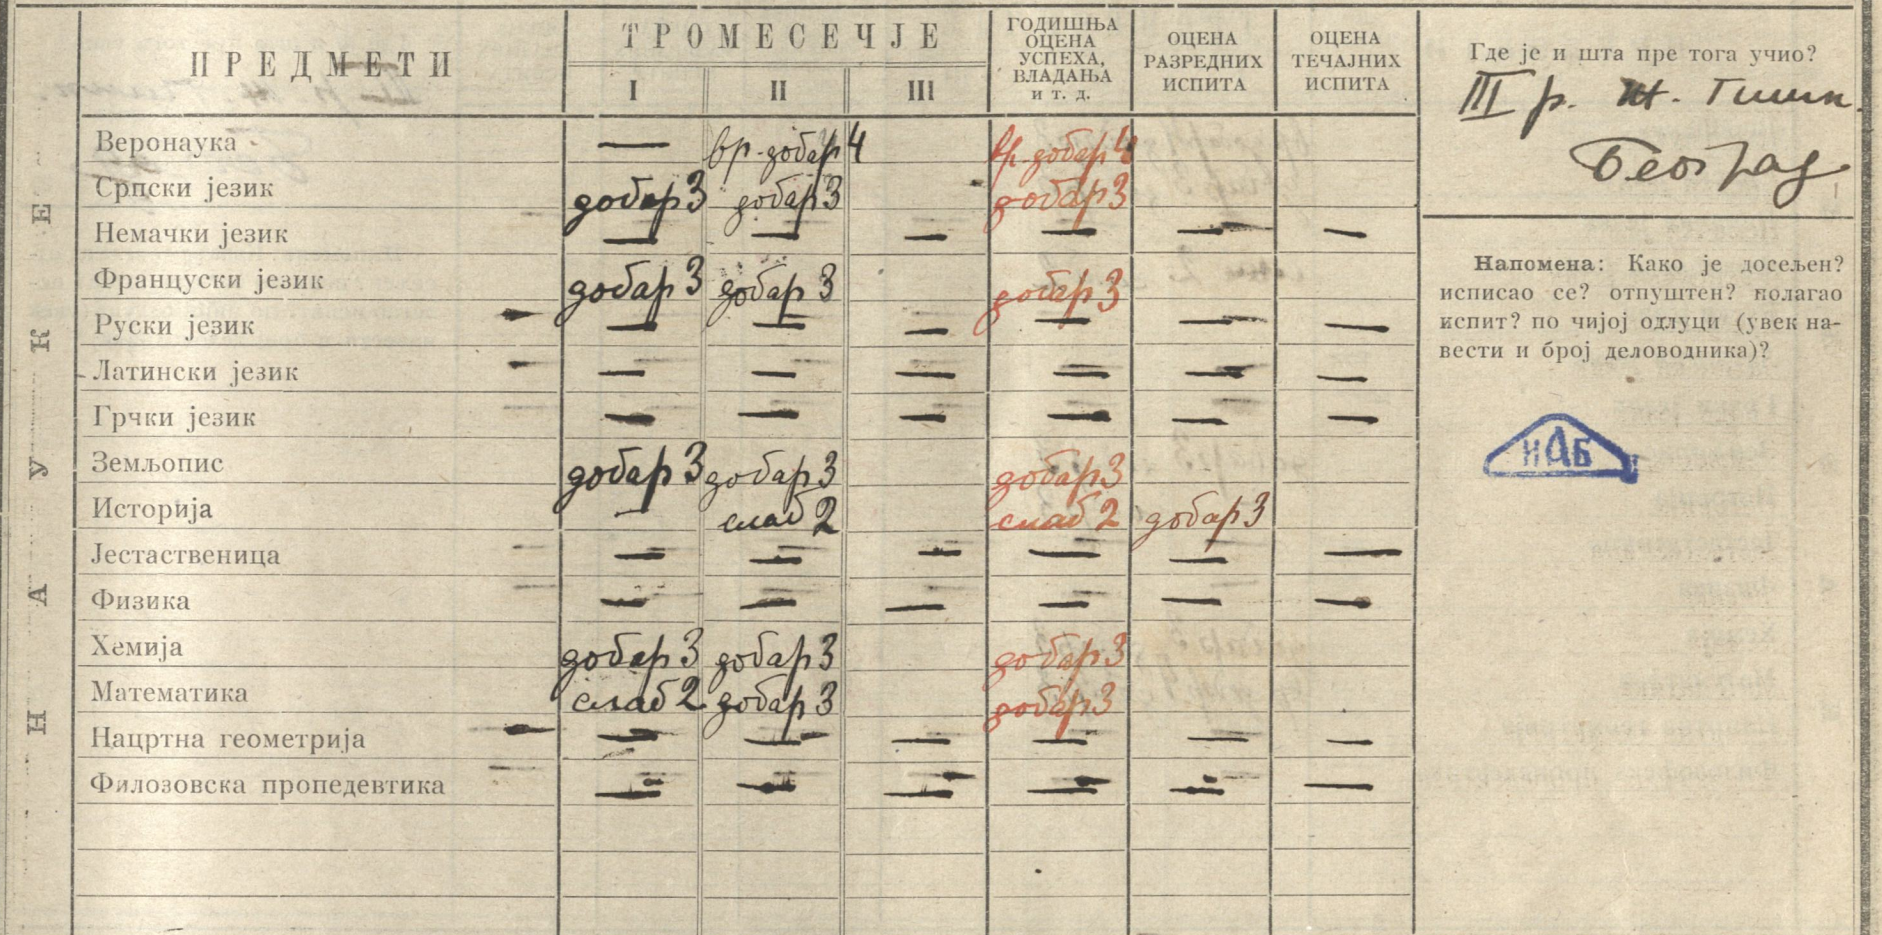 ПРЕДМЕТИ
ТРОМЕСЕЧЈЕ
I II III
ГОДИШЊА
ОЦЕНА
УСПЕХА,
ВЛАДАЊА
и т. д.
ОЦЕНА
РАЗРЕДНИХ
ИСПИТА
ОЦЕНА
ТЕЧАЈНИХ
ИСПИТА
НАУКЕ
Веронаука — вр. добар 4 вр. добар 4
Српски језик добар 3 добар 3 добар 3
Немачки језик — — — — — —
Француски језик добар 3 добар 3 добар 3
Руски језик — — — — — —
Латински језик — — — — — —
Грчки језик — — — — — —
Земљопис добар 3 добар 3 добар 3
Историја — слаб 2 слаб 2 добар 3
Јестаственица — — — — — —
Физика — — — — — —
Хемија добар 3 добар 3 добар 3
Математика слаб 2 добар 3 добар 3
Нацртна геометрија — — — — — —
Филозовска пропедевтика — — — — — —
Где је и шта пре тога учио?
III р. Гимн.
Београд
Напомена: Како је досељен?
исписао се? отпуштен? полагао
испит? по чијој одлуци (увек на-
вести и број деловодника)?
ИАБ